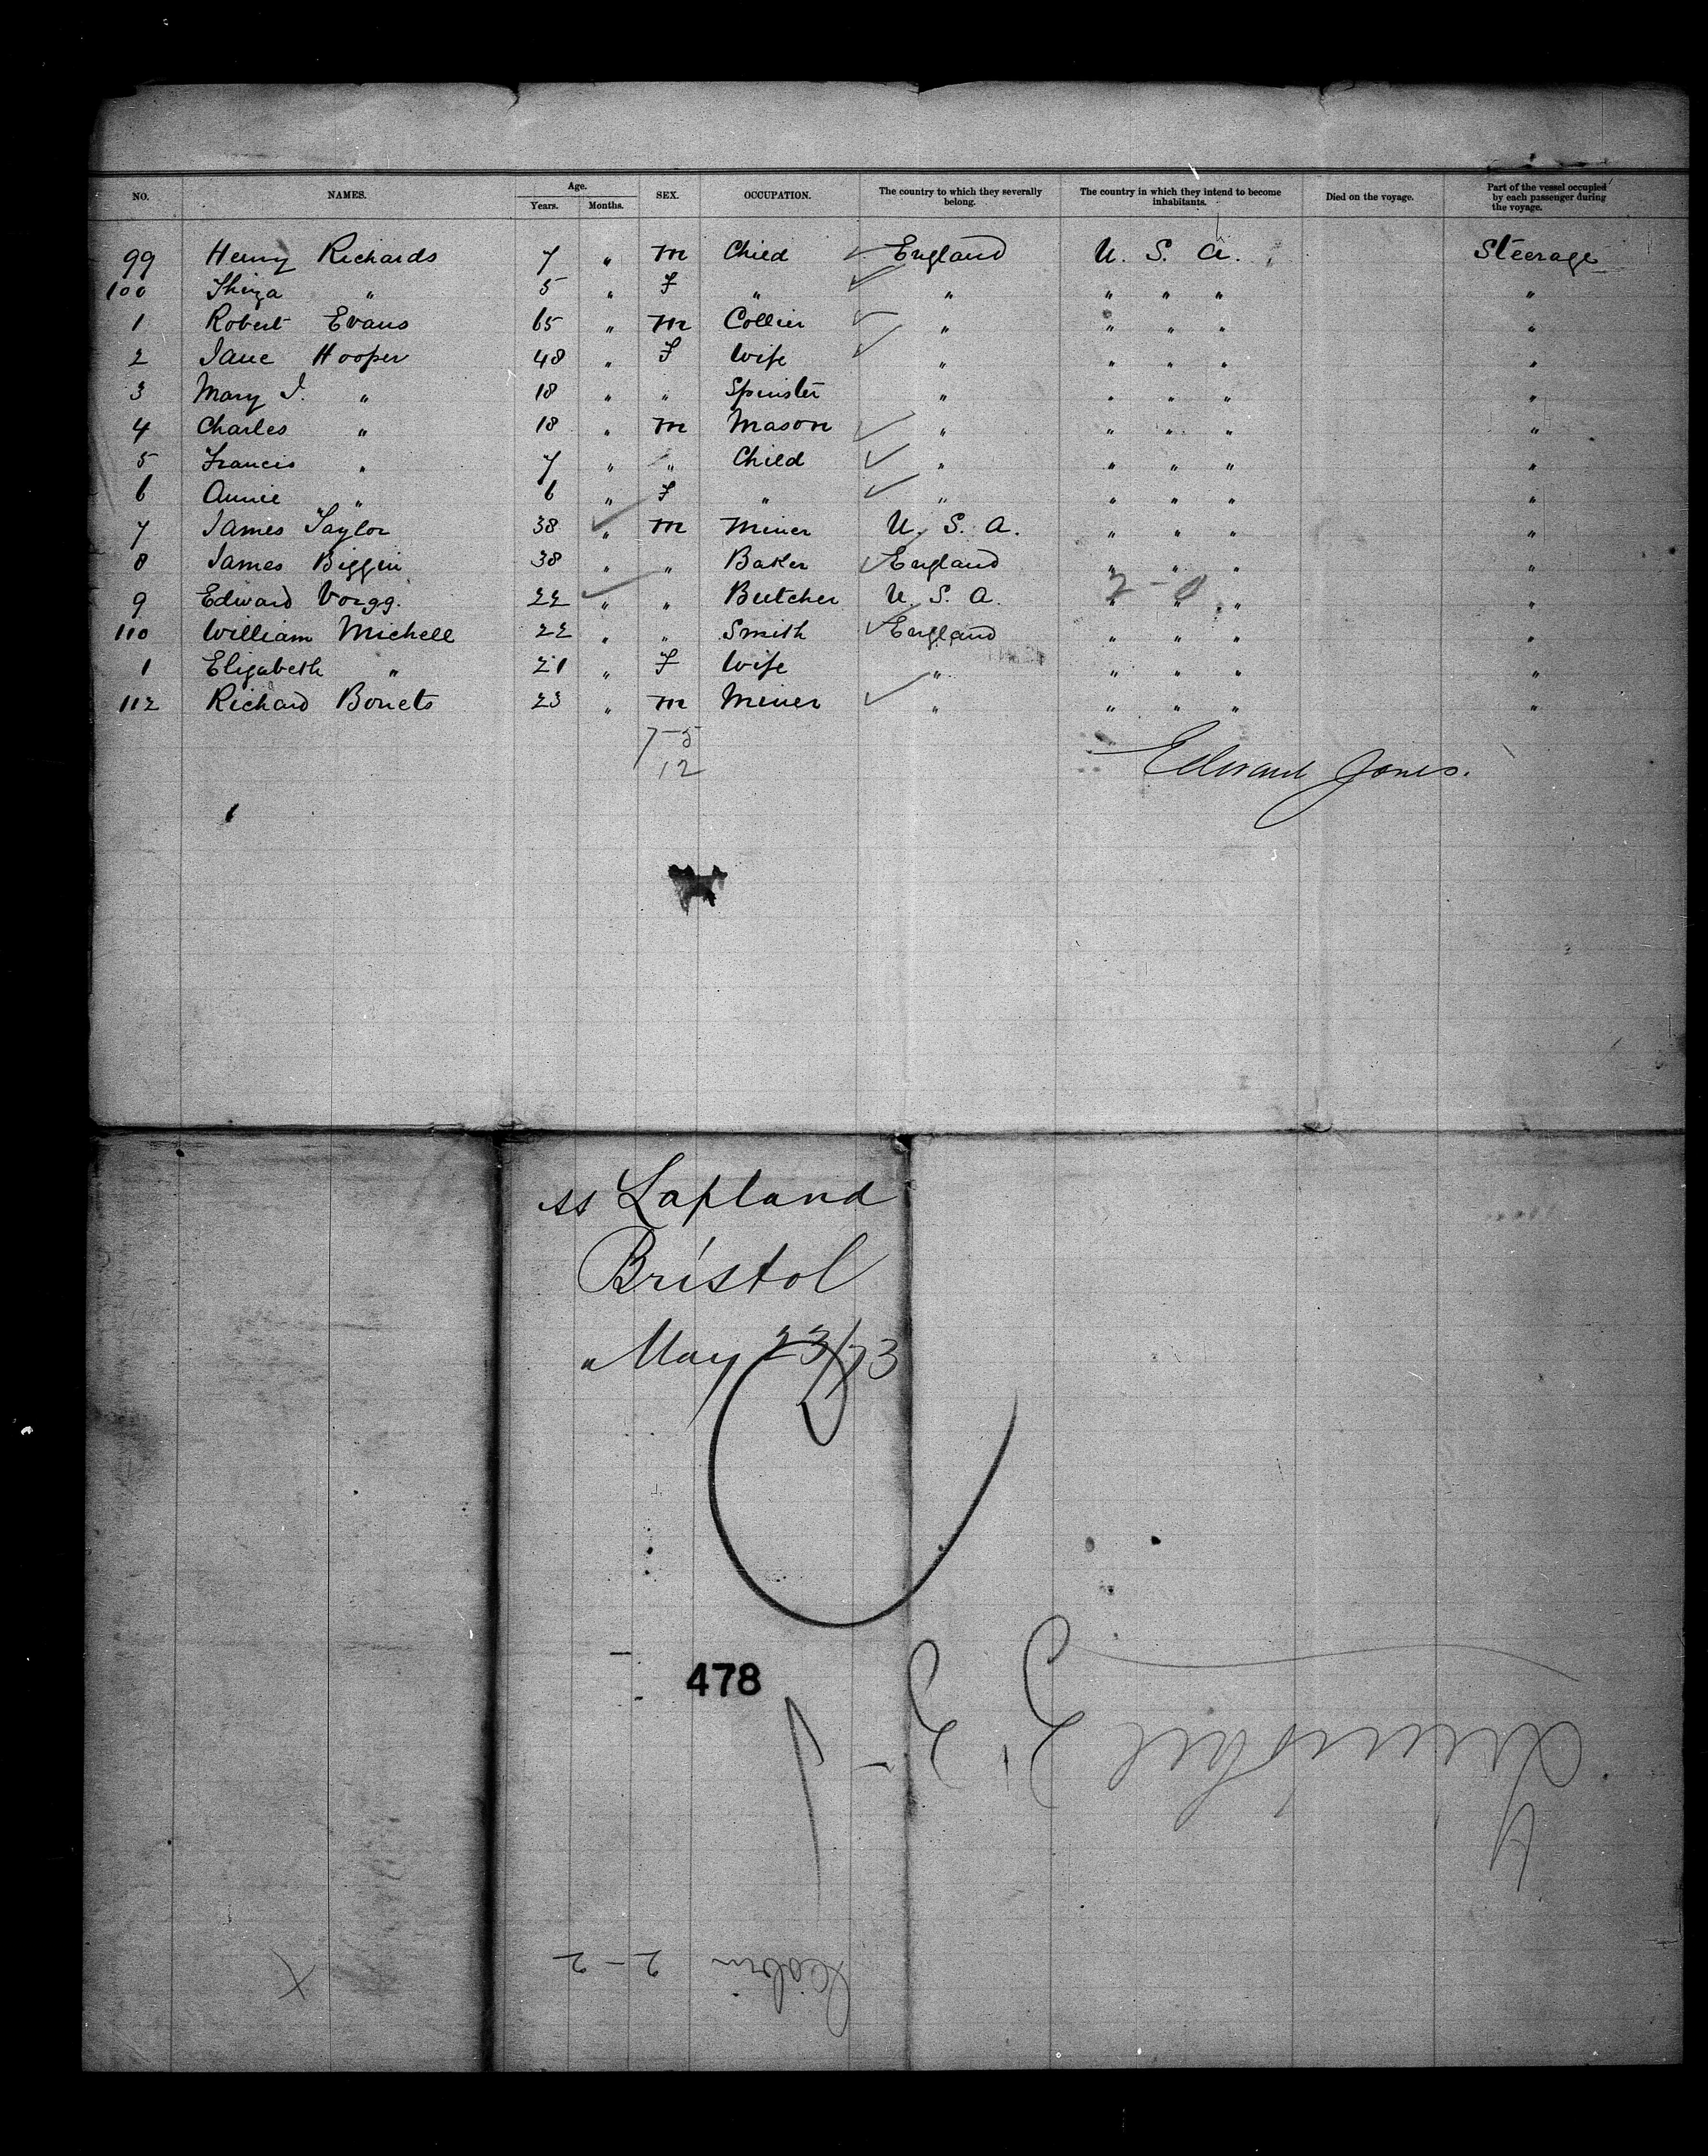 NO. NAMES. Age. Years. Months. SEX. OCCUPATION. The country to which they severally belong. The country in which they intend to become inhabitants. Died on the voyage. Part of the vessel occupied by each passenger during the voyage.
99 Henry Richards 7 " m Child England U. S. A. Steerage
100 " 5 " F " " " " " "
1 Robert Evans 65 " m Collier " " " " "
2 Jane Hooper 48 " F Wife " " " " "
3 Mary J. " 18 " " Spinster " " " " "
4 Charles " 18 " m Mason " " " " "
5 Francis " 7 " " Child " " " " "
6 Annie " 6 " F " " " " " "
7 James Taylor 38 " m Miner U. S. A. " " " "
8 James Biggin 38 " " Baker England " " " "
9 Edward 22 " " Butcher U. S. A. " " " "
2-0
110 William Michell 22 " " Smith England " " " "
1 Elizabeth " 21 " F Wife " " " " "
112 Richard 23 " m Miner " " " " "
7-5
12
Edward Jones.
ss Lapland
Bristol
May 23/73
478
Cabin 2-2